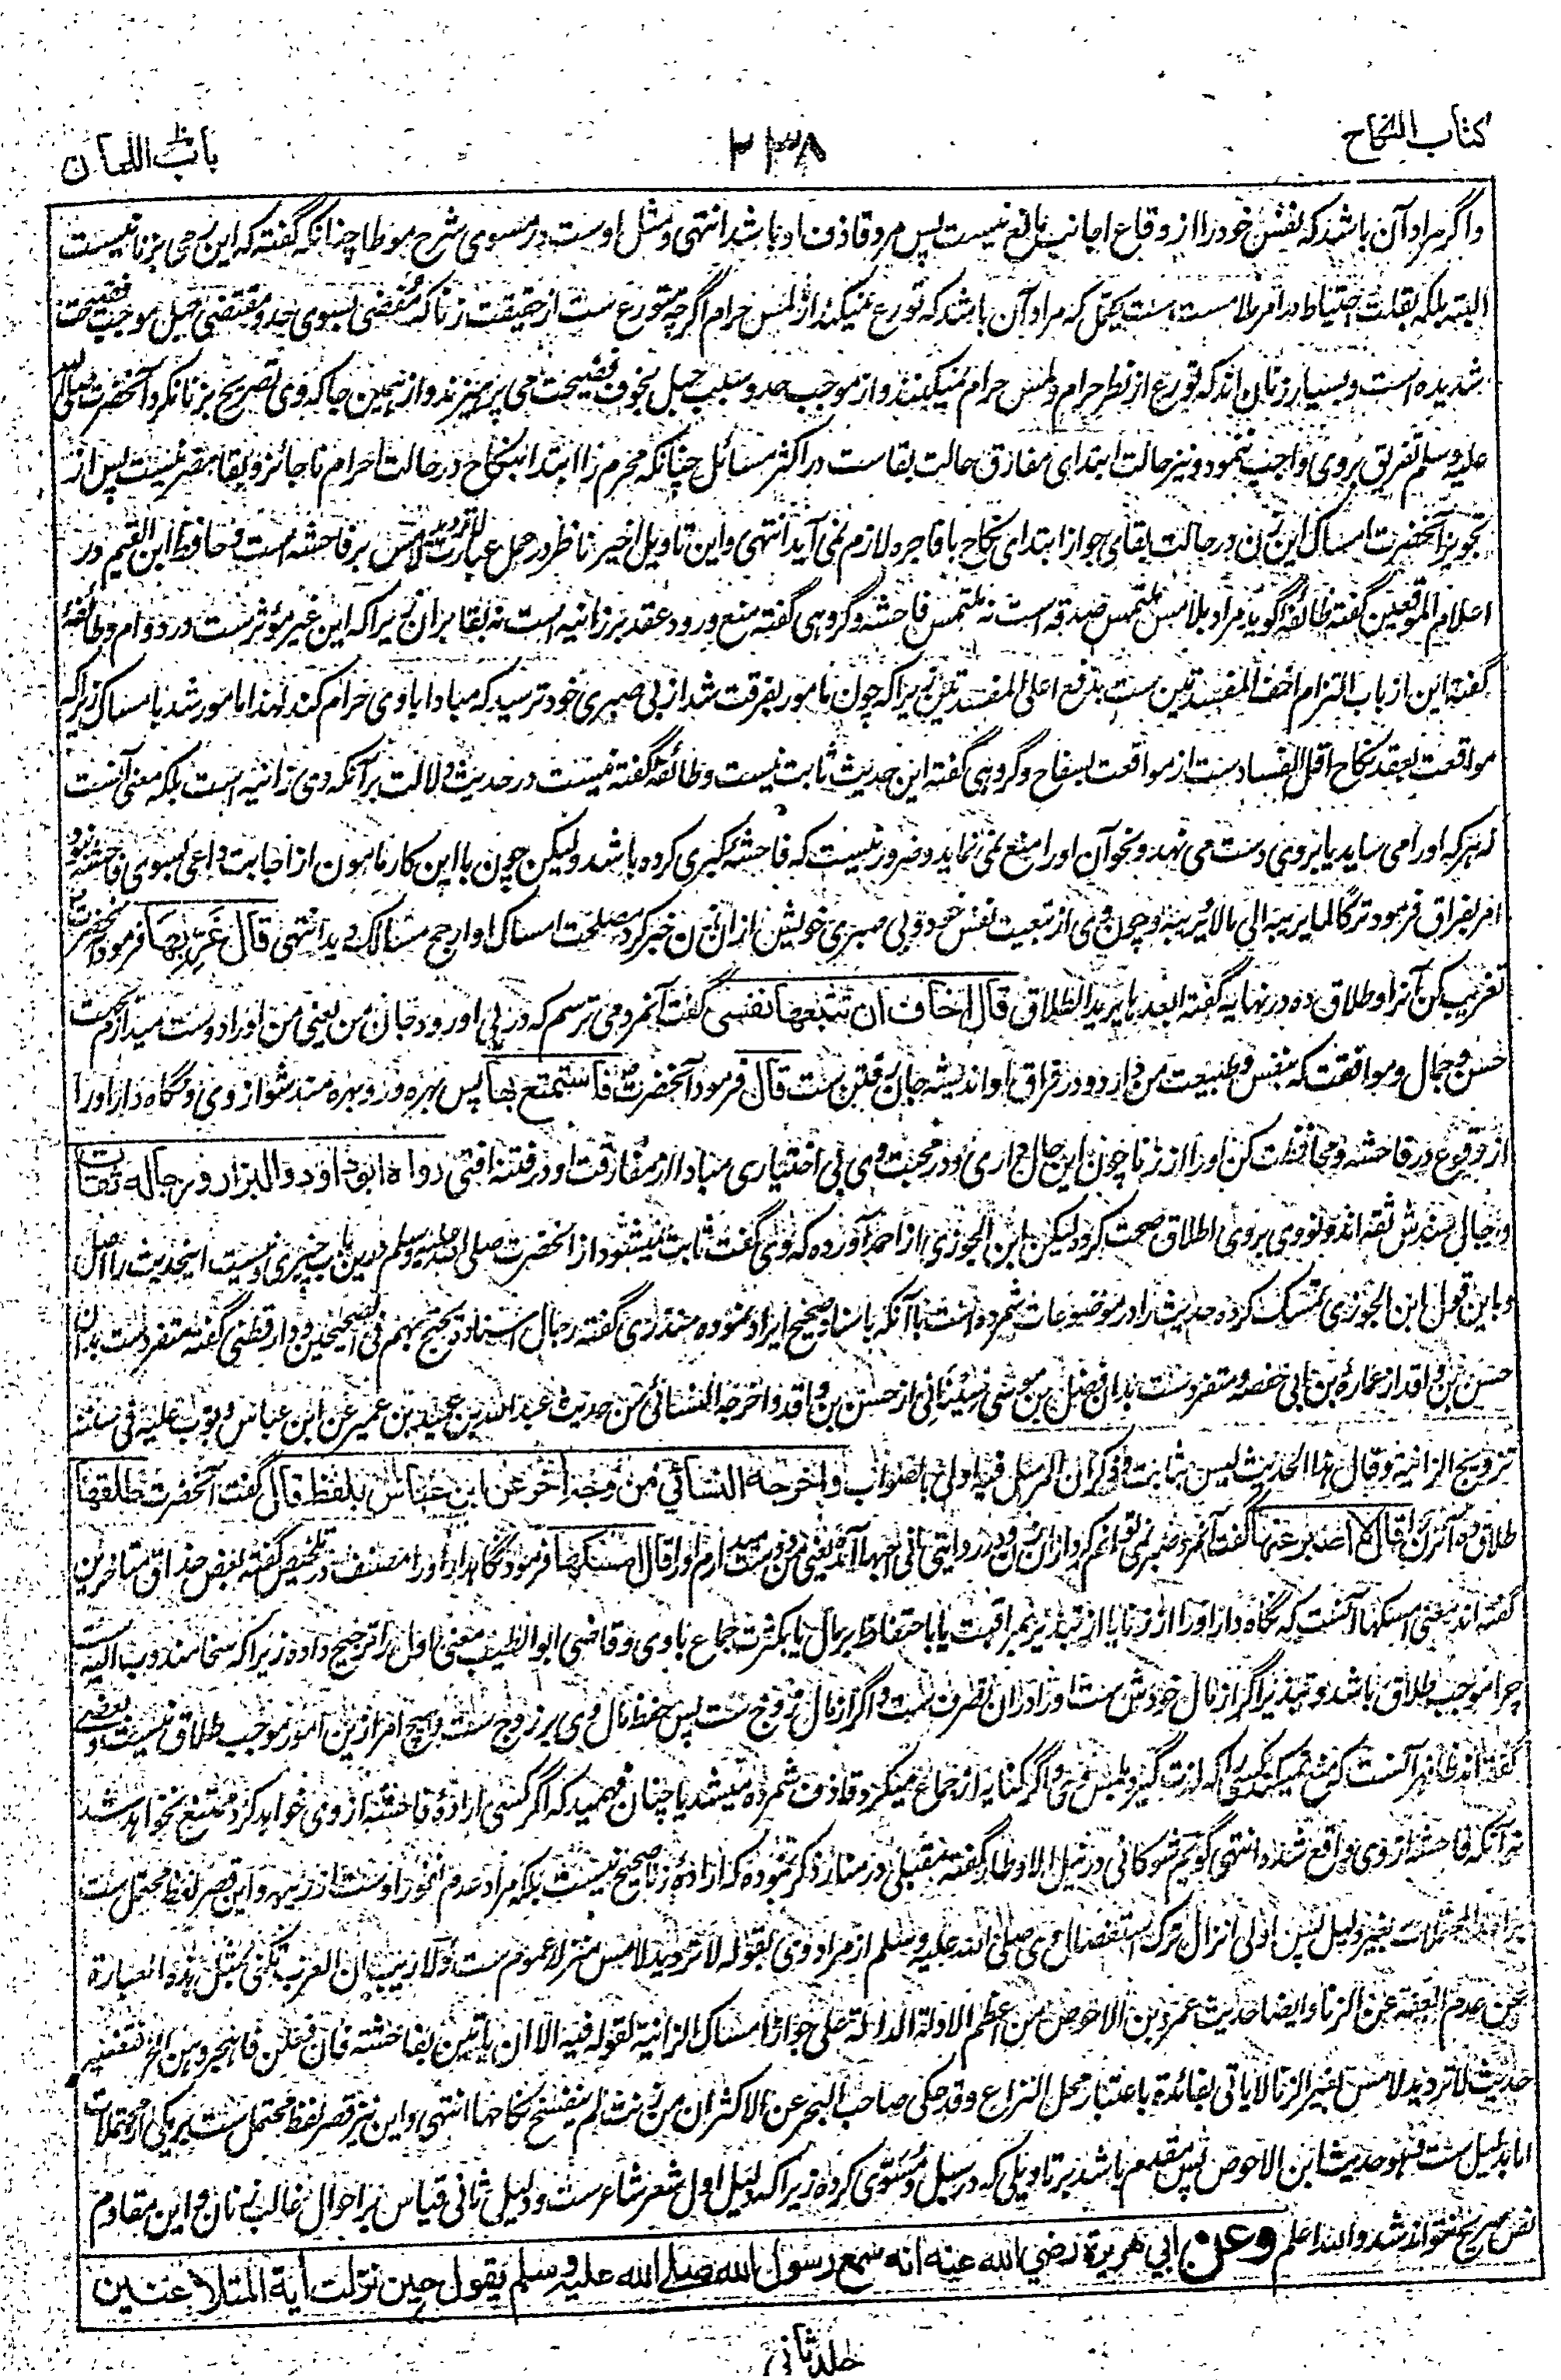 کتاب النکاح
۲۳۸
باب اللعان
واگر مراد آن باشد که نفس خود را از وقاع اجانب مانع نیست پس مرد قاذف او باشد انتهی و مثل اوست در مسوی شرح موطا چنانکه گفته که این رمی بزنا نیست
البته بلکه بقلت احتیاط در امر ملامست ست یحتمل که مراد آن باشد که تورع نمیکند از لمس حرام اگرچه متورع ست از حقیقت زنا که مفضی بسوی حد و مقتضی حبل موجب فضیحت
شدیده است و بسیار زنان اند که تورع از نظر حرام و لمس حرام نمیکنند و از موجب حد و سبب حبل بخوف فضیحت می پرهیزند و از همین جا که وی تصریح بزنا نکرد آنحضرت صلی الله
علیه وسلم تفریق بر وی واجب ننمود و نیز حالت ابتدای مفارق حالت بقاست در اکثر مسائل چنانکه محرم را ابتداء نکاح در حالت احرام ناجائز و بقا مضر نیست پس از
تجویز آنحضرت امساک این زن در حالت بقای جواز ابتدای نکاح با فاجره لازم نمی آید انتهی و این تاویل اخیر ناظر در حمل عبارت لا ترد ید لامس بر فاحشه است و حافظ ابن القیم در
اعلام الموقعین گفته طائفه گوید مراد بلامس ملتمس صدقه است نه ملتمس فاحشه و گروهی گفته منع ورود عقد بر زانیه است نه بقا بر آن زیرا که این غیر مؤثر ست در دوام و طائفه
گفته این از باب التزام اخف المفسدتین ست بدفع اعلی المفسدتین زیرا که چون مامور بفرقت شد از بی صبری خود ترسید که مبادا با وی حرام کند لهذا مامور شد بامساک زیرا که
مواقعت بعقد نکاح اقل الفساد ست از مواقعت بسفاح و گروهی گفته این حدیث ثابت نیست و طائفه گفته نیست در حدیث دلالت بر آنکه وی زانیه است بلکه معنی آنست
که هر که او را می ساید یا بر وی دست می نهد و نحو آن او را منع نمی نماید و ضرور نیست که فاحشه کبری کرده باشد ولیکن چون با این کار مامون از اجابت داعی بسوی فاحشه نبود
امر بفراق فرمود ترکا لما یریبه الی ما لا یریبه و چون وی از تبعیت نفس خود و بی صبری خویش ازان زن خبر کرد مصلحت امساک او ارجح مسالک دید انتهی قال غربها فرمود آنحضرت
تغریب کن آنرا و طلاق ده در نهایه گفته ابعدها یرید الطلاق قال اخاف ان تتبعها نفسی گفت آنمرد می ترسم که در پی او رود جان من یعنی من او را دوست میدارم بجهت
حسن و جمال و موافقت که بنفس و طبیعت من دارد و در فراق او اندیشه جان رفتن ست قال فرمود آنحضرت فاستمتع بها پس بهره ور و بهره مند شو از وی و نگاه دار او را
از وقوع در فاحشه و محافظت کن او را از زنا چون این حال داری و در محبت وی بی اختیاری مبادا از مفارقت او در فتنه افتی رواه ابوداود والبزار ورجاله ثقات
ورجال سندش ثقه اند و نووی بروی اطلاق صحت کرد لیکن ابن الجوزی از احمد آورده که وی گفت ثابت نمیشود از آنحضرت صلی الله علیه وسلم درین باب چیزی و نیست اینحدیث را اصل
و باین قول ابن الجوزی تمسک کرده حدیث را در موضوعات شمرده است با آنکه باسناد صحیح ایراد نموده منذری گفته رجال اسناده تحتج بهم فی الصحیحین و دارقطنی گفته متفرد ست بدان
حسن بن واقد از عمارة بن ابی حفصه و متفرد ست بدان فضل بن موسی سینانی از حسن بن واقد واخرجه النسائی من حدیث عبد الله بن عبید بن عمیر عن ابن عباس وبوب علیه فی سننه
تزویج الزانیة وقال هذا الحدیث لیس بثابت وذکر ان المرسل فیه اولی بالصواب واخرجه النسائی من وجه اخر عن ابن عباس بلفظ قال گفت آنحضرت طلقها
طلاق ده آنزن را قال لا اصبر عنها گفت آنمرد صبر نمی توانم کرد ازان زن و در روایتی انی احبها آمده یعنی من دوست میدارم او را قال امسکها فرمود نگاهدار او را مصنف در تلخیص گفته بعض حذاق متاخرین
گفته اند معنی امسکها آنست که نگاه دار او را از زنا یا از تبذیر بمراقبت یا باحتفاظ بر مال یا بکثرت جماع با وی و قاضی ابو الطیب معنی اول را ترجیح داده زیرا که سخا مندوب الیه است
چرا موجب طلاق باشد و تبذیر اگر از مال خودش ست او را دران تصرف ست و اگر از مال زوج ست پس حفظ مال وی بر زوج ست و هیچ امر ازین امور موجب طلاق نیست و بعضی
گفته اند ظاهر آنست که منع نمیکند کسی را که لذت گیرد بلمس وی و اگر کنایه از جماع میکرد قاذف شمرده میشد یا چنان فهمید که اگر کسی اراده فاحشه از وی خواهد کرد ممتنع نخواهد شد
نه آنکه فاحشه از وی واقع شده انتهی گویم شوکانی در نیل الاوطار گفته مقبلی در منار ذکر نموده که اراده زنا صحیح نیست بلکه مراد عدم نفور اوست از ریبه و این قصر لفظ محتمل ست
بر احد المحتملات بغیر دلیل پس اولی انزال ترک استفصال وی صلی الله علیه وسلم از مراد وی بقوله لا ترد ید لامس منزلا عموم ست ولا ریب ان العرب تکنی بمثل هذه العبارة
عن عدم العفة عن الزنا وایضا حدیث عمرو بن الاحوص من اعظم الادلة الدالة علی جواز امساک الزانیة لقوله فیه الا ان یاتین بفاحشة فان فعلن فاهجروهن الخ فتفسیر
حدیث لا ترد ید لامس بغیر الزنا لا یاتی بفائدة باعتبار محل النزاع وقد حکی صاحب البحر عن الاکثر ان من زنت لم ینفسخ نکاحها انتهی و این نیز قصر لفظ محتمل ست بر یکی از محتملات
اما بدلیل ست وهو حدیث ابن الاحوص پس مقدم باشد بر تاویلی که در سبل و مسوی کرده زیرا که دلیل اول شعر شاعر ست و دلیل ثانی قیاس بر احوال غالب زنان و این مقاوم
نص صریح نتواند شد والله اعلم وعن ابی هریرة رضی الله عنه انه سمع رسول الله صلی الله علیه وسلم یقول حین نزلت آیة المتلاعنین
جلد ثانی